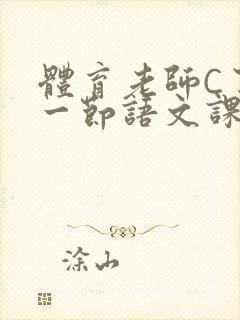 體育老師C
一節語文課
涂山